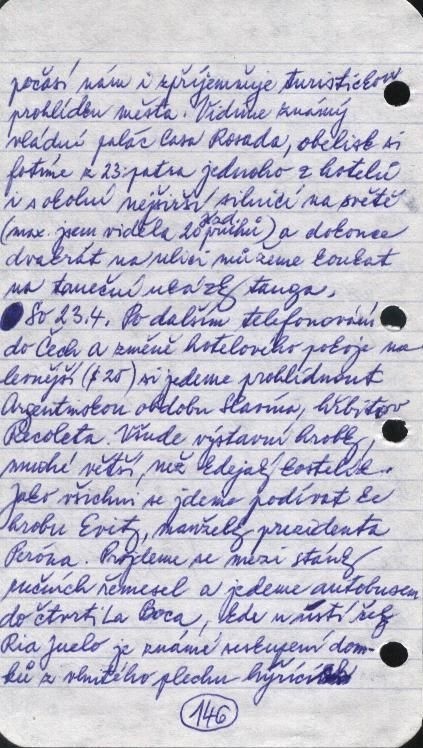 počasí nám i zpříjemňuje turistickou
prohlídku města. Vidíme známý
vládní palác Casa Rosada, obelisk si
fotíme z 23. patra jednoho z hotelů
i s okolní nejširší silnicí na světě
(max. jsem viděla 20 jízd. pruhů) a dokonce
dvakrát na ulici můžeme koukat
na taneční ukázky tanga.
So 23.4. Po dalším telefonování
do Čech a změně hotelového pokoje na
levnější ($20) si jedeme prohlídnout
Argentinskou obdobu Slavína, hřbitov
Recoleta. Všude výstavní hrobky,
mnohé větší, než kdejaký kostelík.
Jako všichni se jdeme podívat ke
hrobu Evity, manželky prezidenta
Peróna. Projdeme se mezi stánky
ručních řemesel a jedeme autobusem
do čtvrti La Boca, kde u ústí řeky
Ria Juelo je známé seskupení dom-
ků z vlnitého plechu hýřící
146